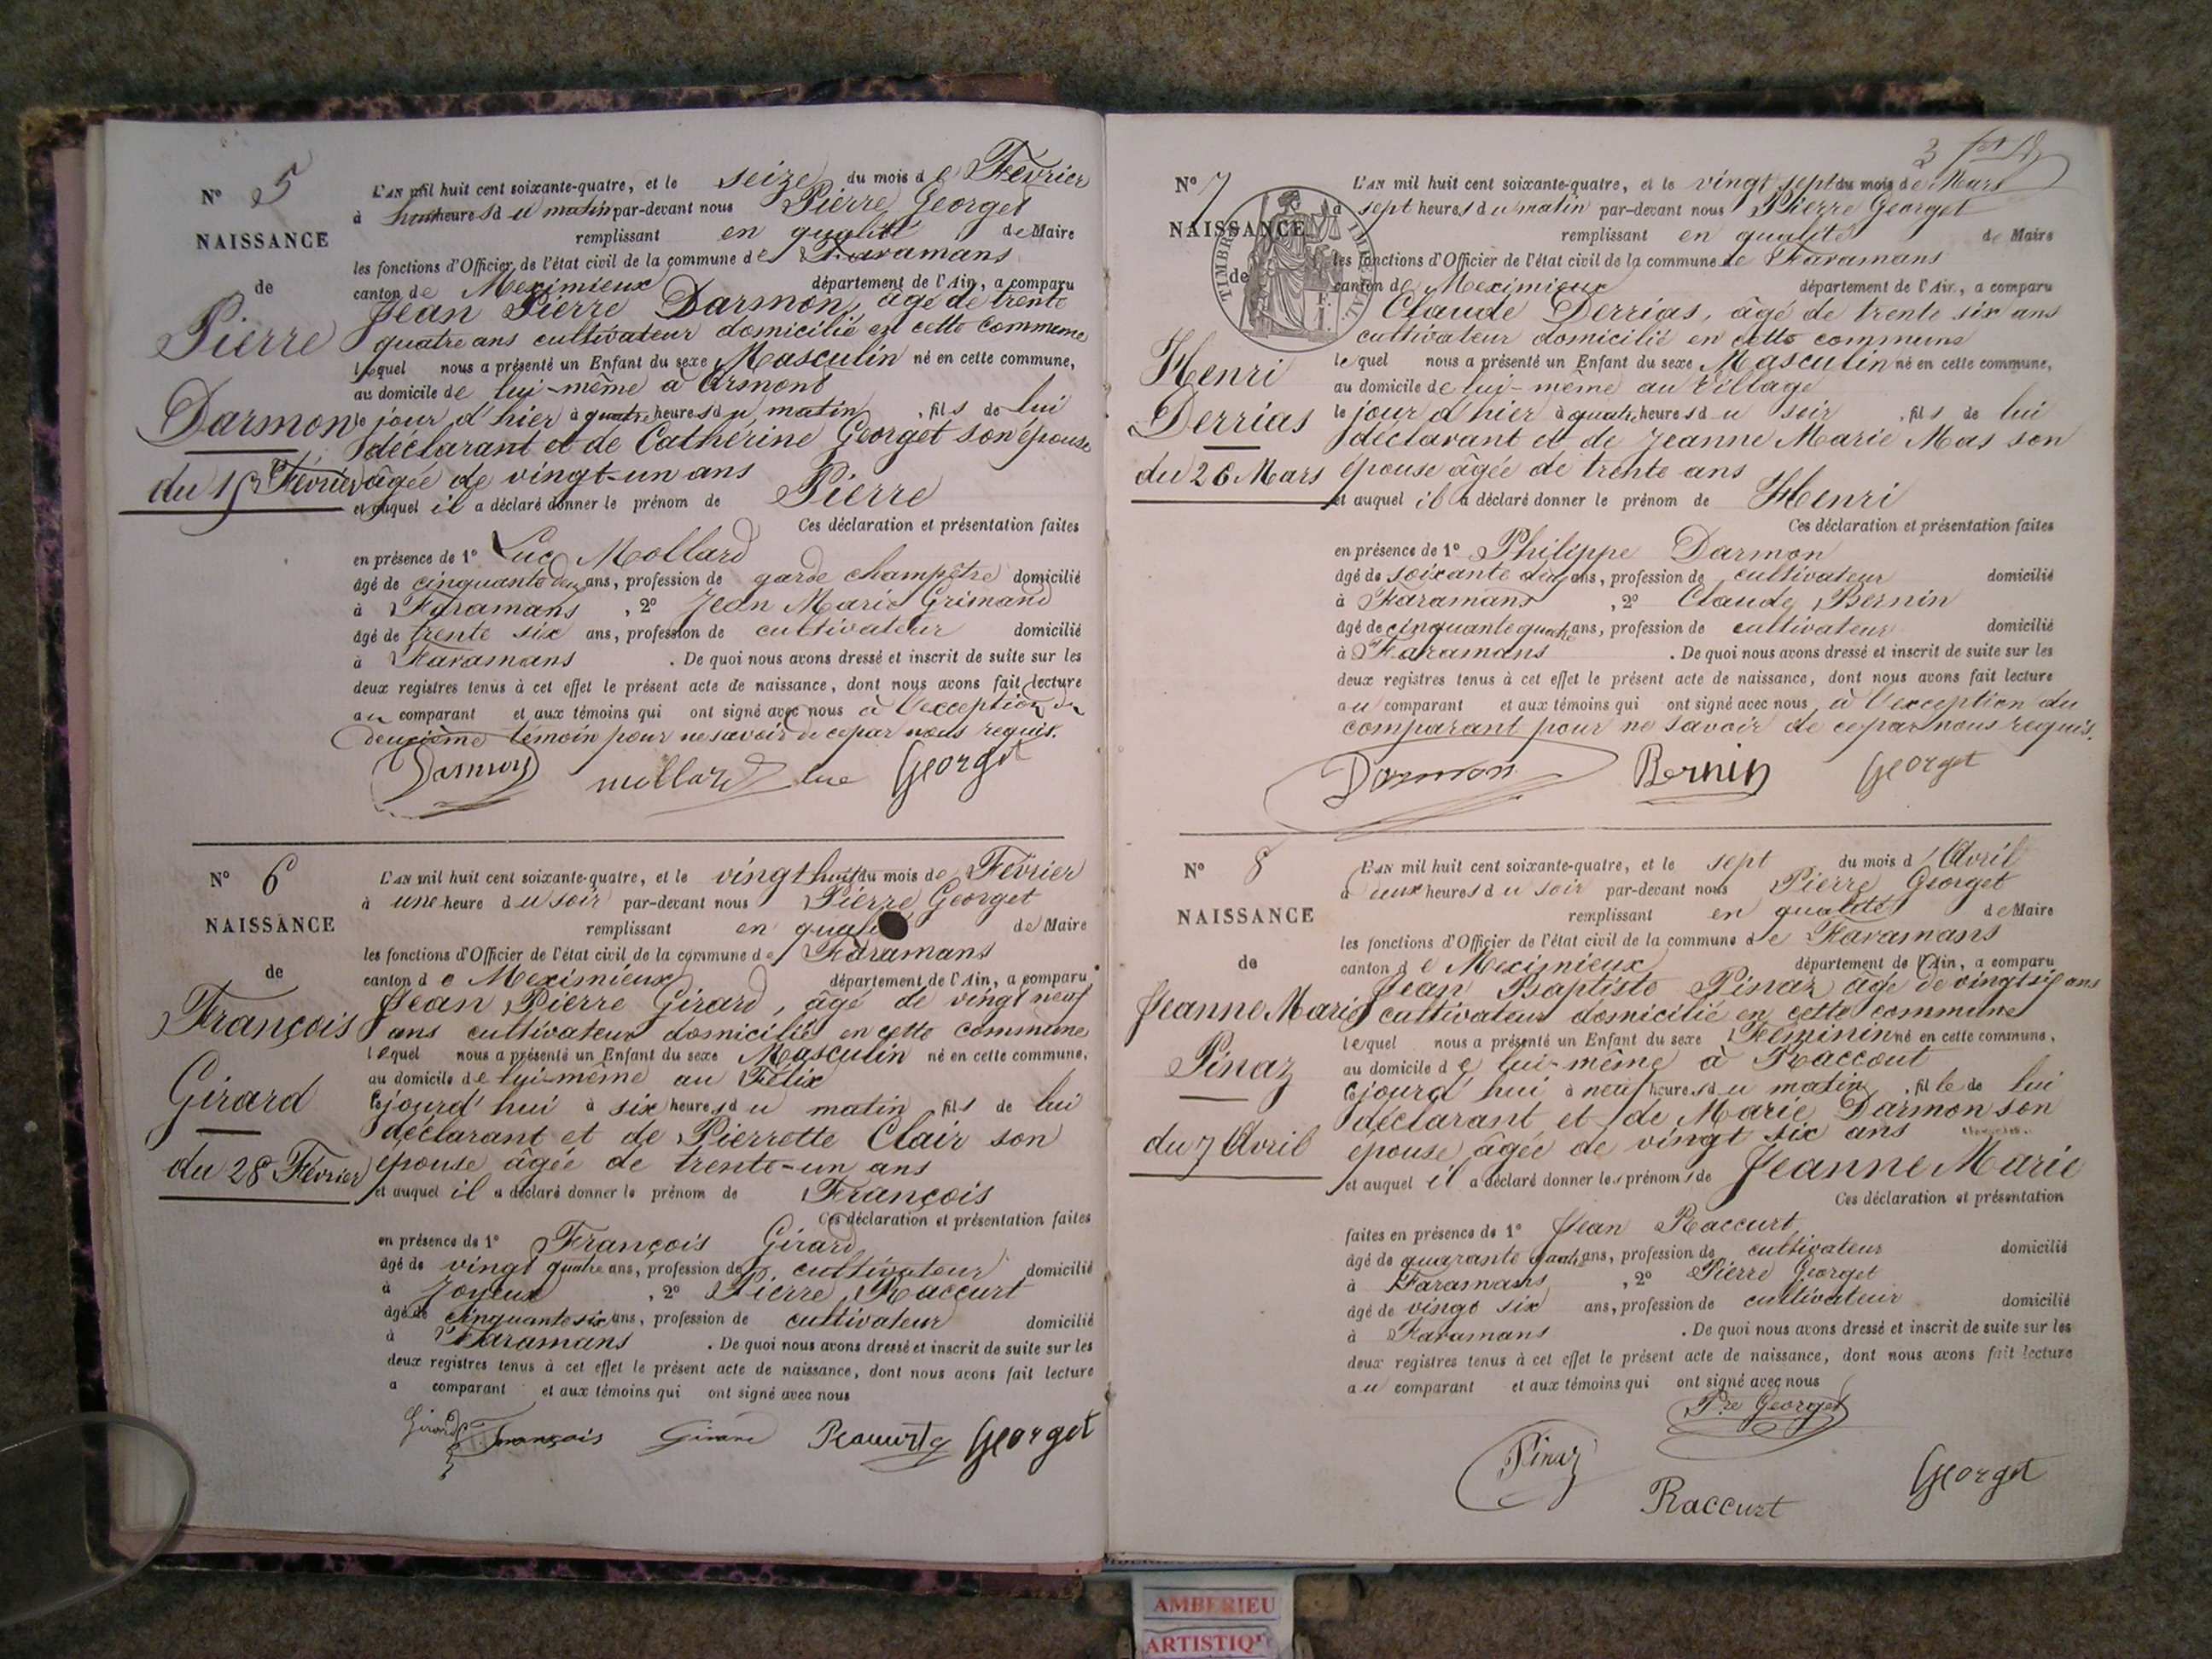 N° 5
NAISSANCE
de
Pierre
Darmon
du 15 Février
L'AN mil huit cent soixante-quatre, et le seize du mois de Février
à heures du matin par-devant nous Pierre Georget
remplissant en qualité de Maire
les fonctions d'Officier de l'état civil de la commune de Faramans
canton de Meximieux département de l'Ain, a comparu
Jean Pierre Darmon, âgé de trente
quatre ans cultivateur domicilié en cette commune
lequel nous a présenté un Enfant du sexe Masculin né en cette commune,
au domicile de lui-même à
le jour d'hier à quatre heures du matin, fils de lui
déclarant et de Catherine Georget son épouse
âgée de vingt-un ans
et auquel il a déclaré donner le prénom de Pierre
Ces déclaration et présentation faites
en présence de 1° Luc Mollard
âgé de cinquante deux ans, profession de garde champêtre domicilié
à Faramans, 2° Jean Marie Grimand
âgé de trente six ans, profession de cultivateur domicilié
à Faramans. De quoi nous avons dressé et inscrit de suite sur les
deux registres tenus à cet effet le présent acte de naissance, dont nous avons fait lecture
au comparant et aux témoins qui ont signé avec nous à l'exception du
deuxième témoin pour ne savoir de ce par nous requis.
Darmon mollard luc Georget
N° 6
NAISSANCE
de
François
Girard
du 28 Février
L'AN mil huit cent soixante-quatre, et le vingt huit du mois de Février
à une heure du soir par-devant nous Pierre Georget
remplissant en qualité de Maire
les fonctions d'Officier de l'état civil de la commune de Faramans
canton de Meximieux département de l'Ain, a comparu
Jean Pierre Girard, âgé de vingt neuf
ans cultivateur domicilié en cette commune
lequel nous a présenté un Enfant du sexe Masculin né en cette commune,
au domicile de lui-même au Félix
cejourd'hui à six heures du matin, fils de lui
déclarant et de Pierrette Clair son
épouse âgée de trente-un ans
et auquel il a déclaré donner le prénom de François
Ces déclaration et présentation faites
en présence de 1° François Girard
âgé de vingt quatre ans, profession de cultivateur domicilié
à Joyeux, 2° Pierre Raccurt
âgé de cinquante six ans, profession de cultivateur domicilié
à Faramans. De quoi nous avons dressé et inscrit de suite sur les
deux registres tenus à cet effet le présent acte de naissance, dont nous avons fait lecture
a comparant et aux témoins qui ont signé avec nous
Girard François Girard Raccurt Georget
3
N° 7
NAISSANCE
de
TIMBRE IMPERIAL
Henri
Derrias
du 26 Mars
L'AN mil huit cent soixante-quatre, et le vingt sept du mois de Mars
à sept heures du matin par-devant nous Pierre Georget
remplissant en qualité de Maire
les fonctions d'Officier de l'état civil de la commune de Faramans
canton de Meximieux département de l'Ain, a comparu
Claude Derrias, âgé de trente six ans
cultivateur domicilié en cette commune
lequel nous a présenté un Enfant du sexe Masculin né en cette commune,
au domicile de lui-même au Village
le jour d'hier à quatre heures du soir, fils de lui
déclarant et de Jeanne Marie Mas son
épouse âgée de trente ans
et auquel il a déclaré donner le prénom de Henri
Ces déclaration et présentation faites
en présence de 1° Philippe Darmon
âgé de soixante deux ans, profession de cultivateur domicilié
à Faramans, 2° Claude Bernin
âgé de cinquante quatre ans, profession de cultivateur domicilié
à Faramans. De quoi nous avons dressé et inscrit de suite sur les
deux registres tenus à cet effet le présent acte de naissance, dont nous avons fait lecture
au comparant et aux témoins qui ont signé avec nous, à l'exception du
comparant pour ne savoir de ce par nous requis.
Darmon Bernin Georget
N° 8
NAISSANCE
de
Jeanne Marie
Pinaz
du 7 Avril
L'AN mil huit cent soixante-quatre, et le sept du mois d'Avril
à heures du soir par-devant nous Pierre Georget
remplissant en qualité de Maire
les fonctions d'Officier de l'état civil de la commune de Faramans
canton de Meximieux département de l'Ain, a comparu
Jean Baptiste Pinaz âgé de vingt six ans
cultivateur domicilié en cette commune
lequel nous a présenté un Enfant du sexe Féminin né en cette commune,
au domicile de lui-même à Raccout
cejourd'hui à neuf heures du matin, fille de lui
déclarant et de Marie Darmon son
épouse âgée de vingt six ans
et auquel il a déclaré donner les prénoms de Jeanne Marie
Ces déclaration et présentation
faites en présence de 1° Jean Raccurt
âgé de quarante quatre ans, profession de cultivateur domicilié
à Faramans, 2° Pierre Georget
âgé de vingt six ans, profession de cultivateur domicilié
à Faramans. De quoi nous avons dressé et inscrit de suite sur les
deux registres tenus à cet effet le présent acte de naissance, dont nous avons fait lecture
au comparant et aux témoins qui ont signé avec nous
Pre Georget
Pinaz
Raccurt
Georget
AMBERIEU
ARTISTIQUE